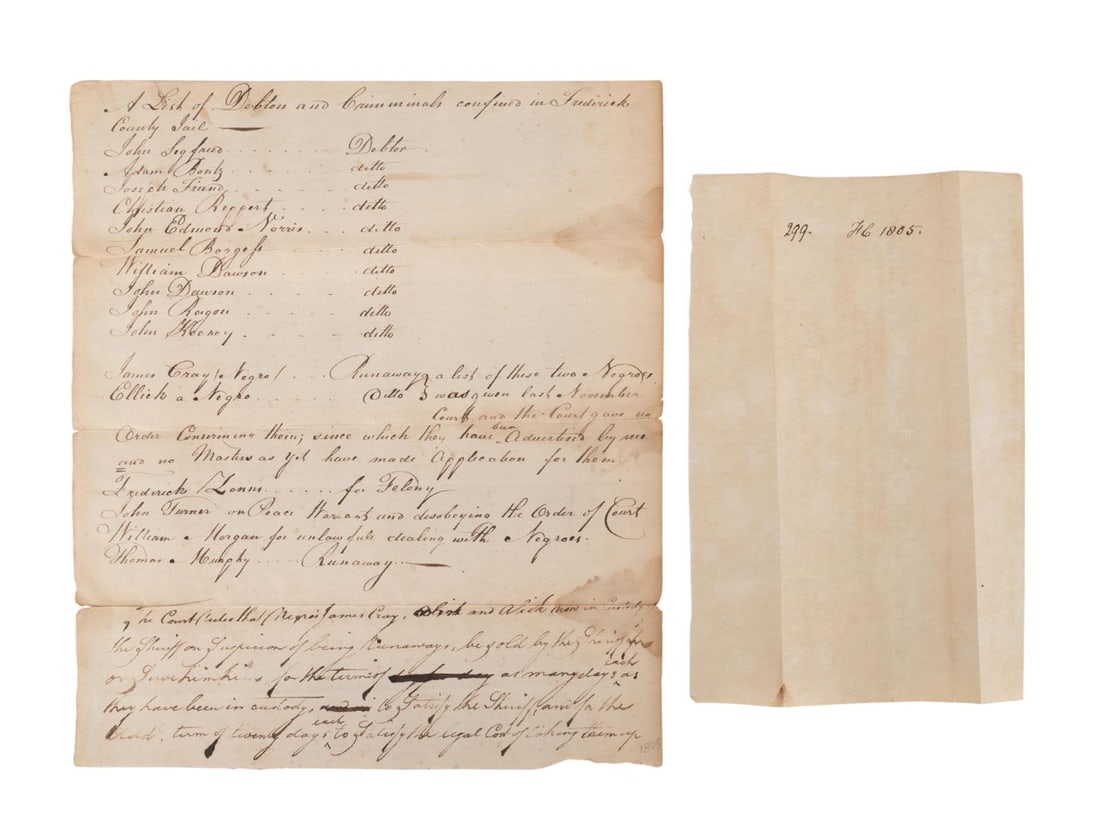 A List of Debtors and Criminals confined in Frederick
County Jail
John Sigfreed Debtor
Adam Bontz ditto
Joseph Friend ditto
Christian Reppert ditto
John Edmond Norris ditto
Samuel Borgess ditto
William Dawson ditto
John Dawson ditto
John Ragon ditto
John ditto
James Cray (Negro) Runaway } a list of these two Negroes
Ellick a Negro Ditto } was given last November
Court, and the Court gave no
Order Concerning them; since which they have been Advertised by me
and no Masters as yet have made Application for them
Frederick for Felony
John Turner on Peace Warrant and disobeying the Order of Court
William Morgan for unlawfull dealing with Negroes.
Thomas Murphy Runaway
The Court order that Negroes James Cray, and now in custody
the Sheriff on Suspicion of being Runaways, be sold by the Sheriff
or for the term of as many days each as
they have been in custody, to Satisfy the Sheriff, and for the
term of twenty days each to Satisfy the legal Cost of taking them up
299. 1805.